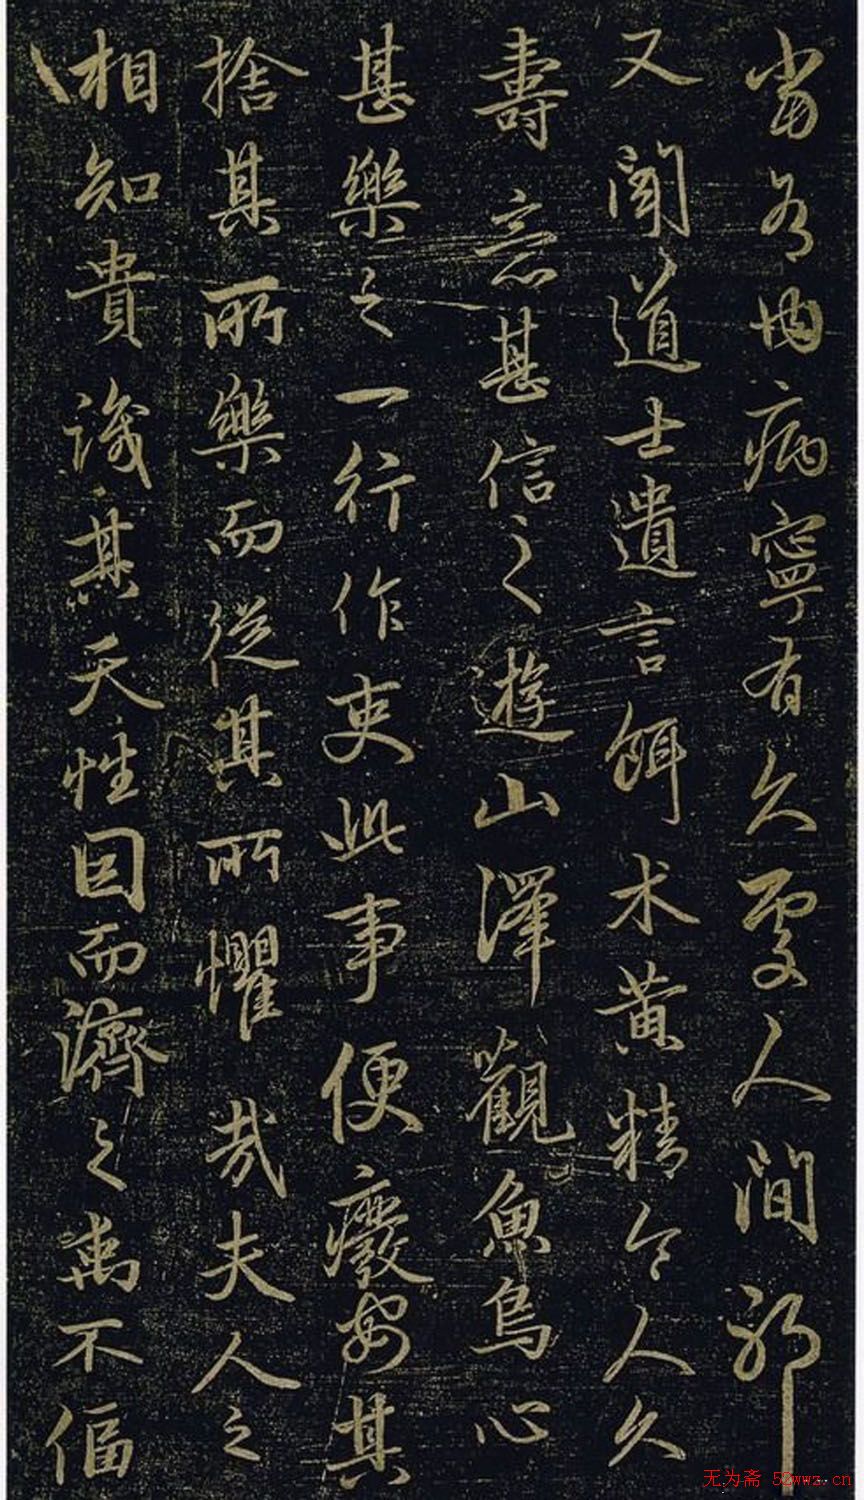 當有内病寧有久處人間邪
又聞道士遺言餌术黃精令人久
壽意甚信之遊山澤觀魚鳥心
甚樂之一行作吏此事便廢安其
捨其所樂而從其所懼哉夫人之
相知貴識其天性因而濟之禹不偪
无为斋 52wwz.cn